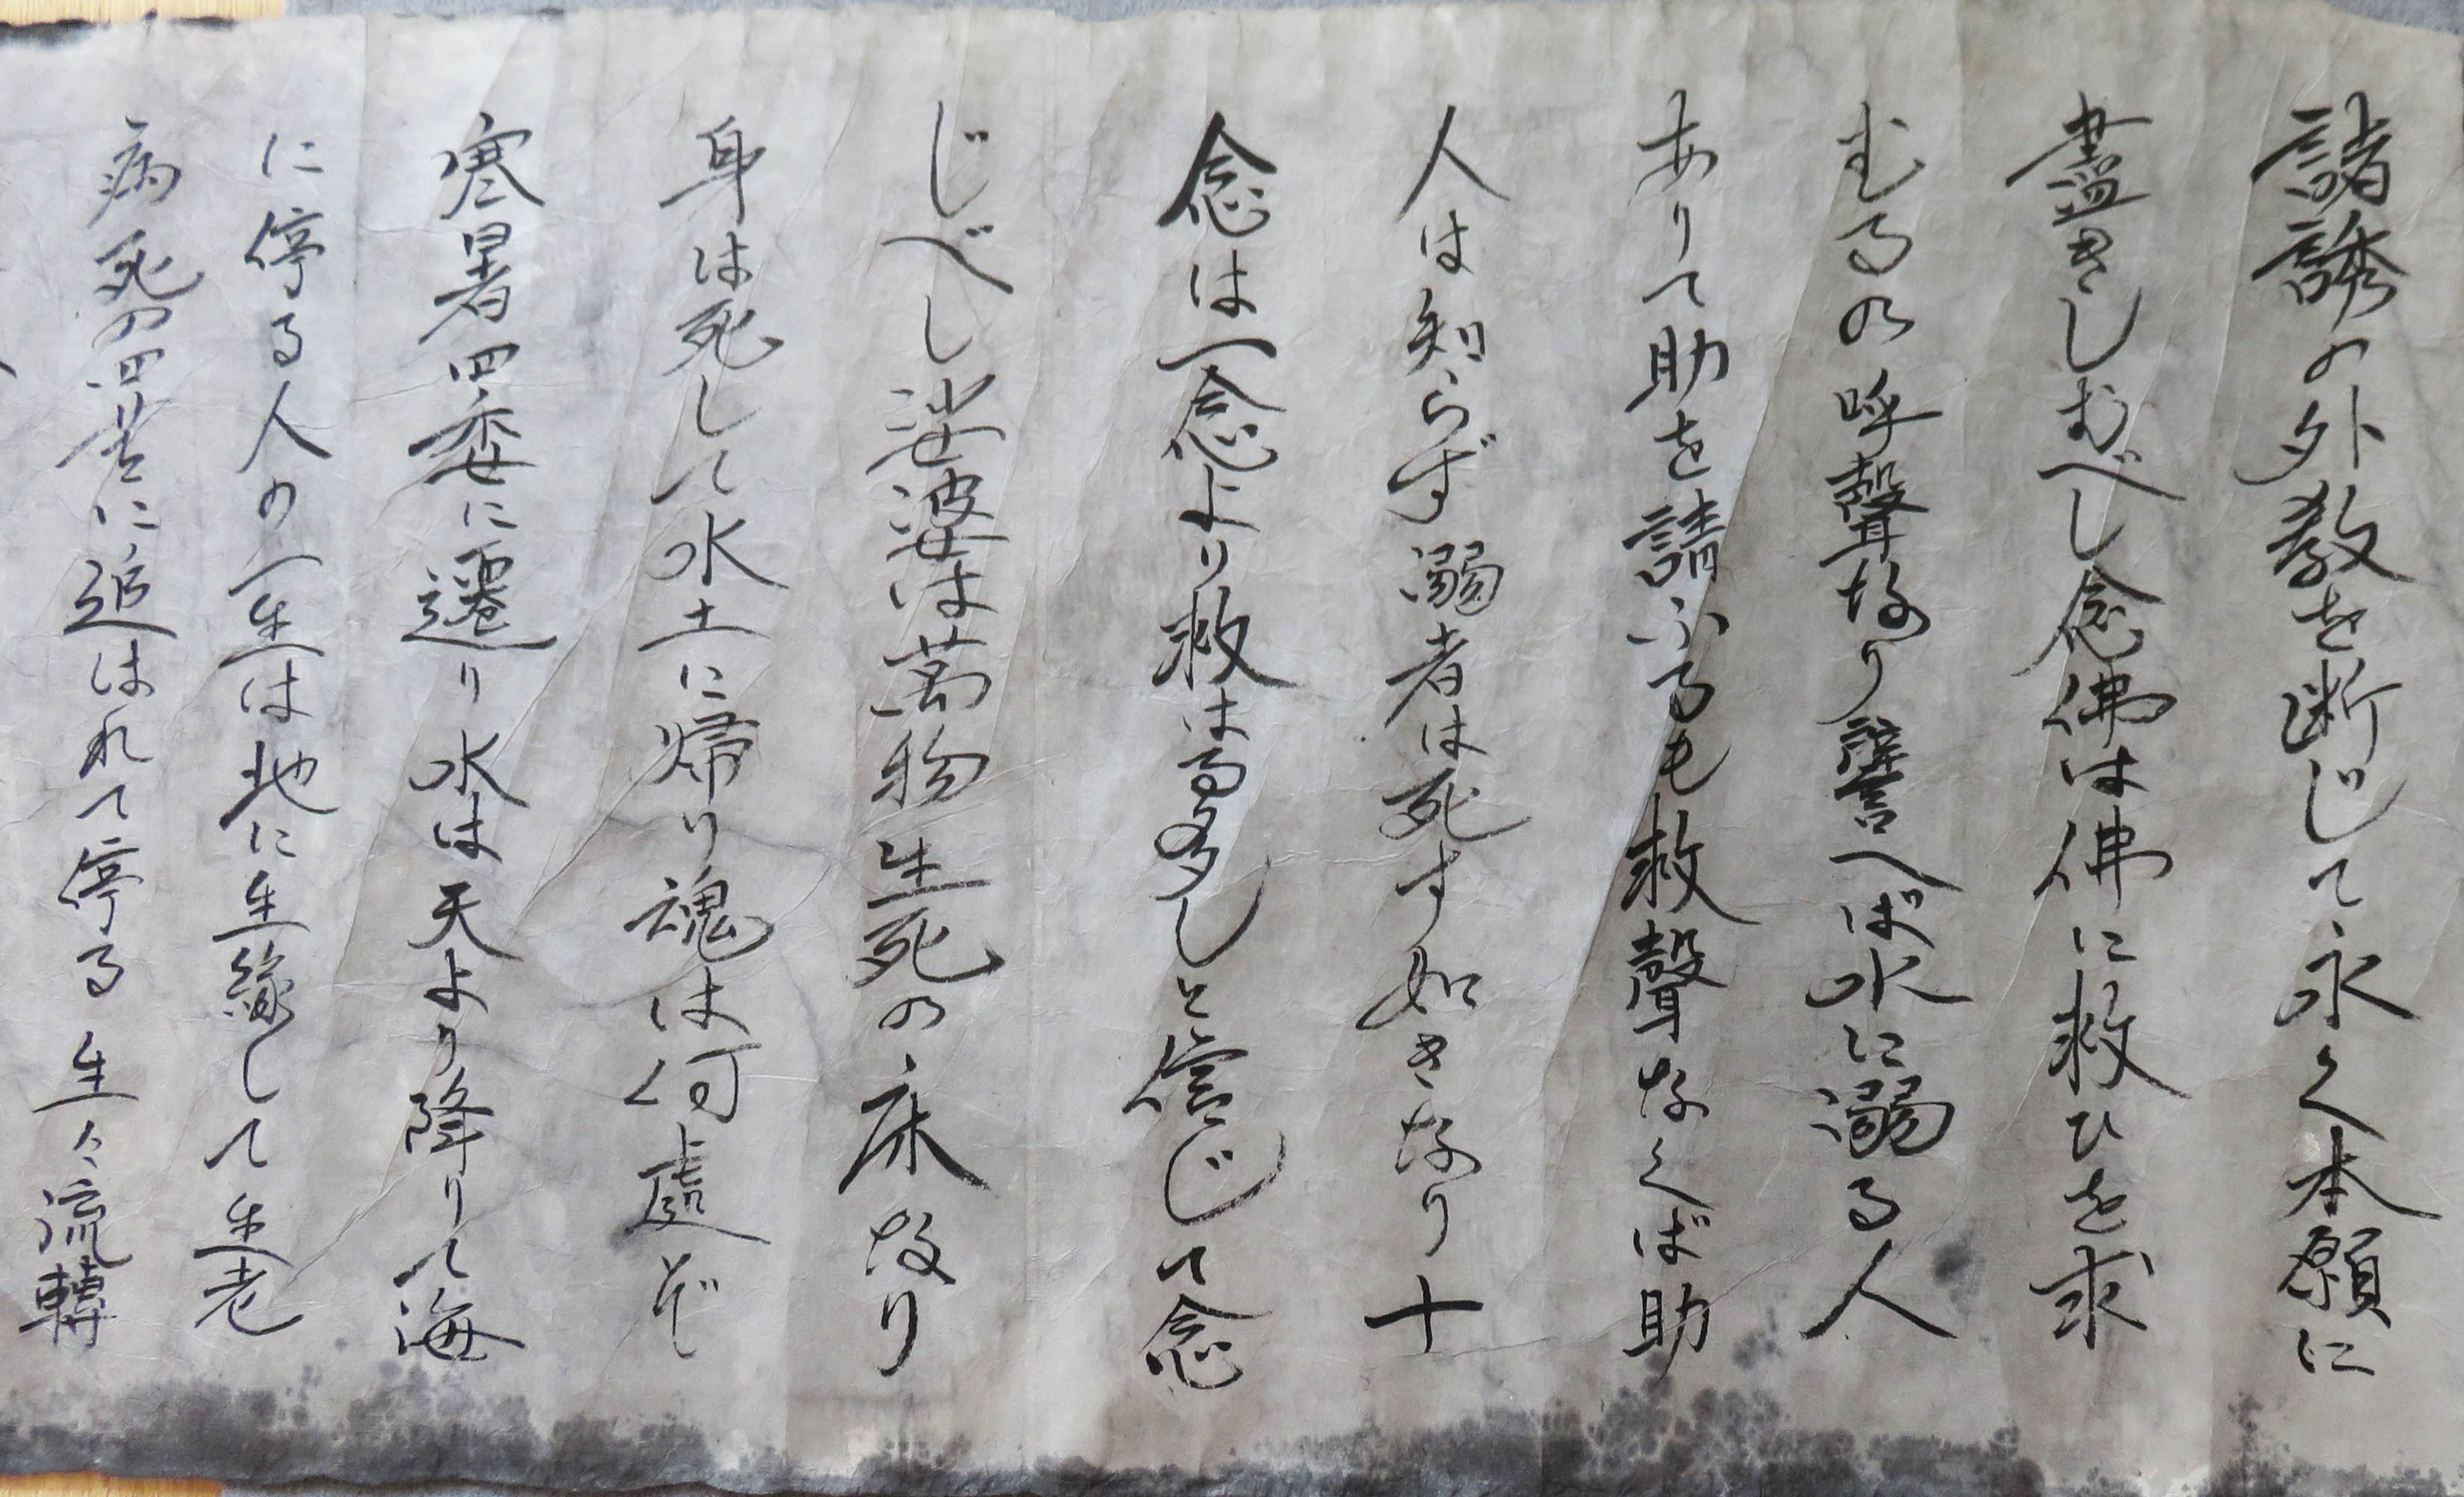 諸誘の外教を断じて永く本願に
盡きしむべし念佛は佛に救ひを求
むるの呼聲なり譬へば水に溺る人
ありて助を請ふるも救聲なくば助
人は知らず溺者は死す如きなり十
念は一念より救はる多しと信じて念
じべし娑婆は萬物生死の床なり
身は死して水土に帰り魂は何處ぞ
寒暑四季に遷り水は天より降りて海
に停る人の一生は地に生縁して生老
病死の四苦に追はれて停る生々流轉